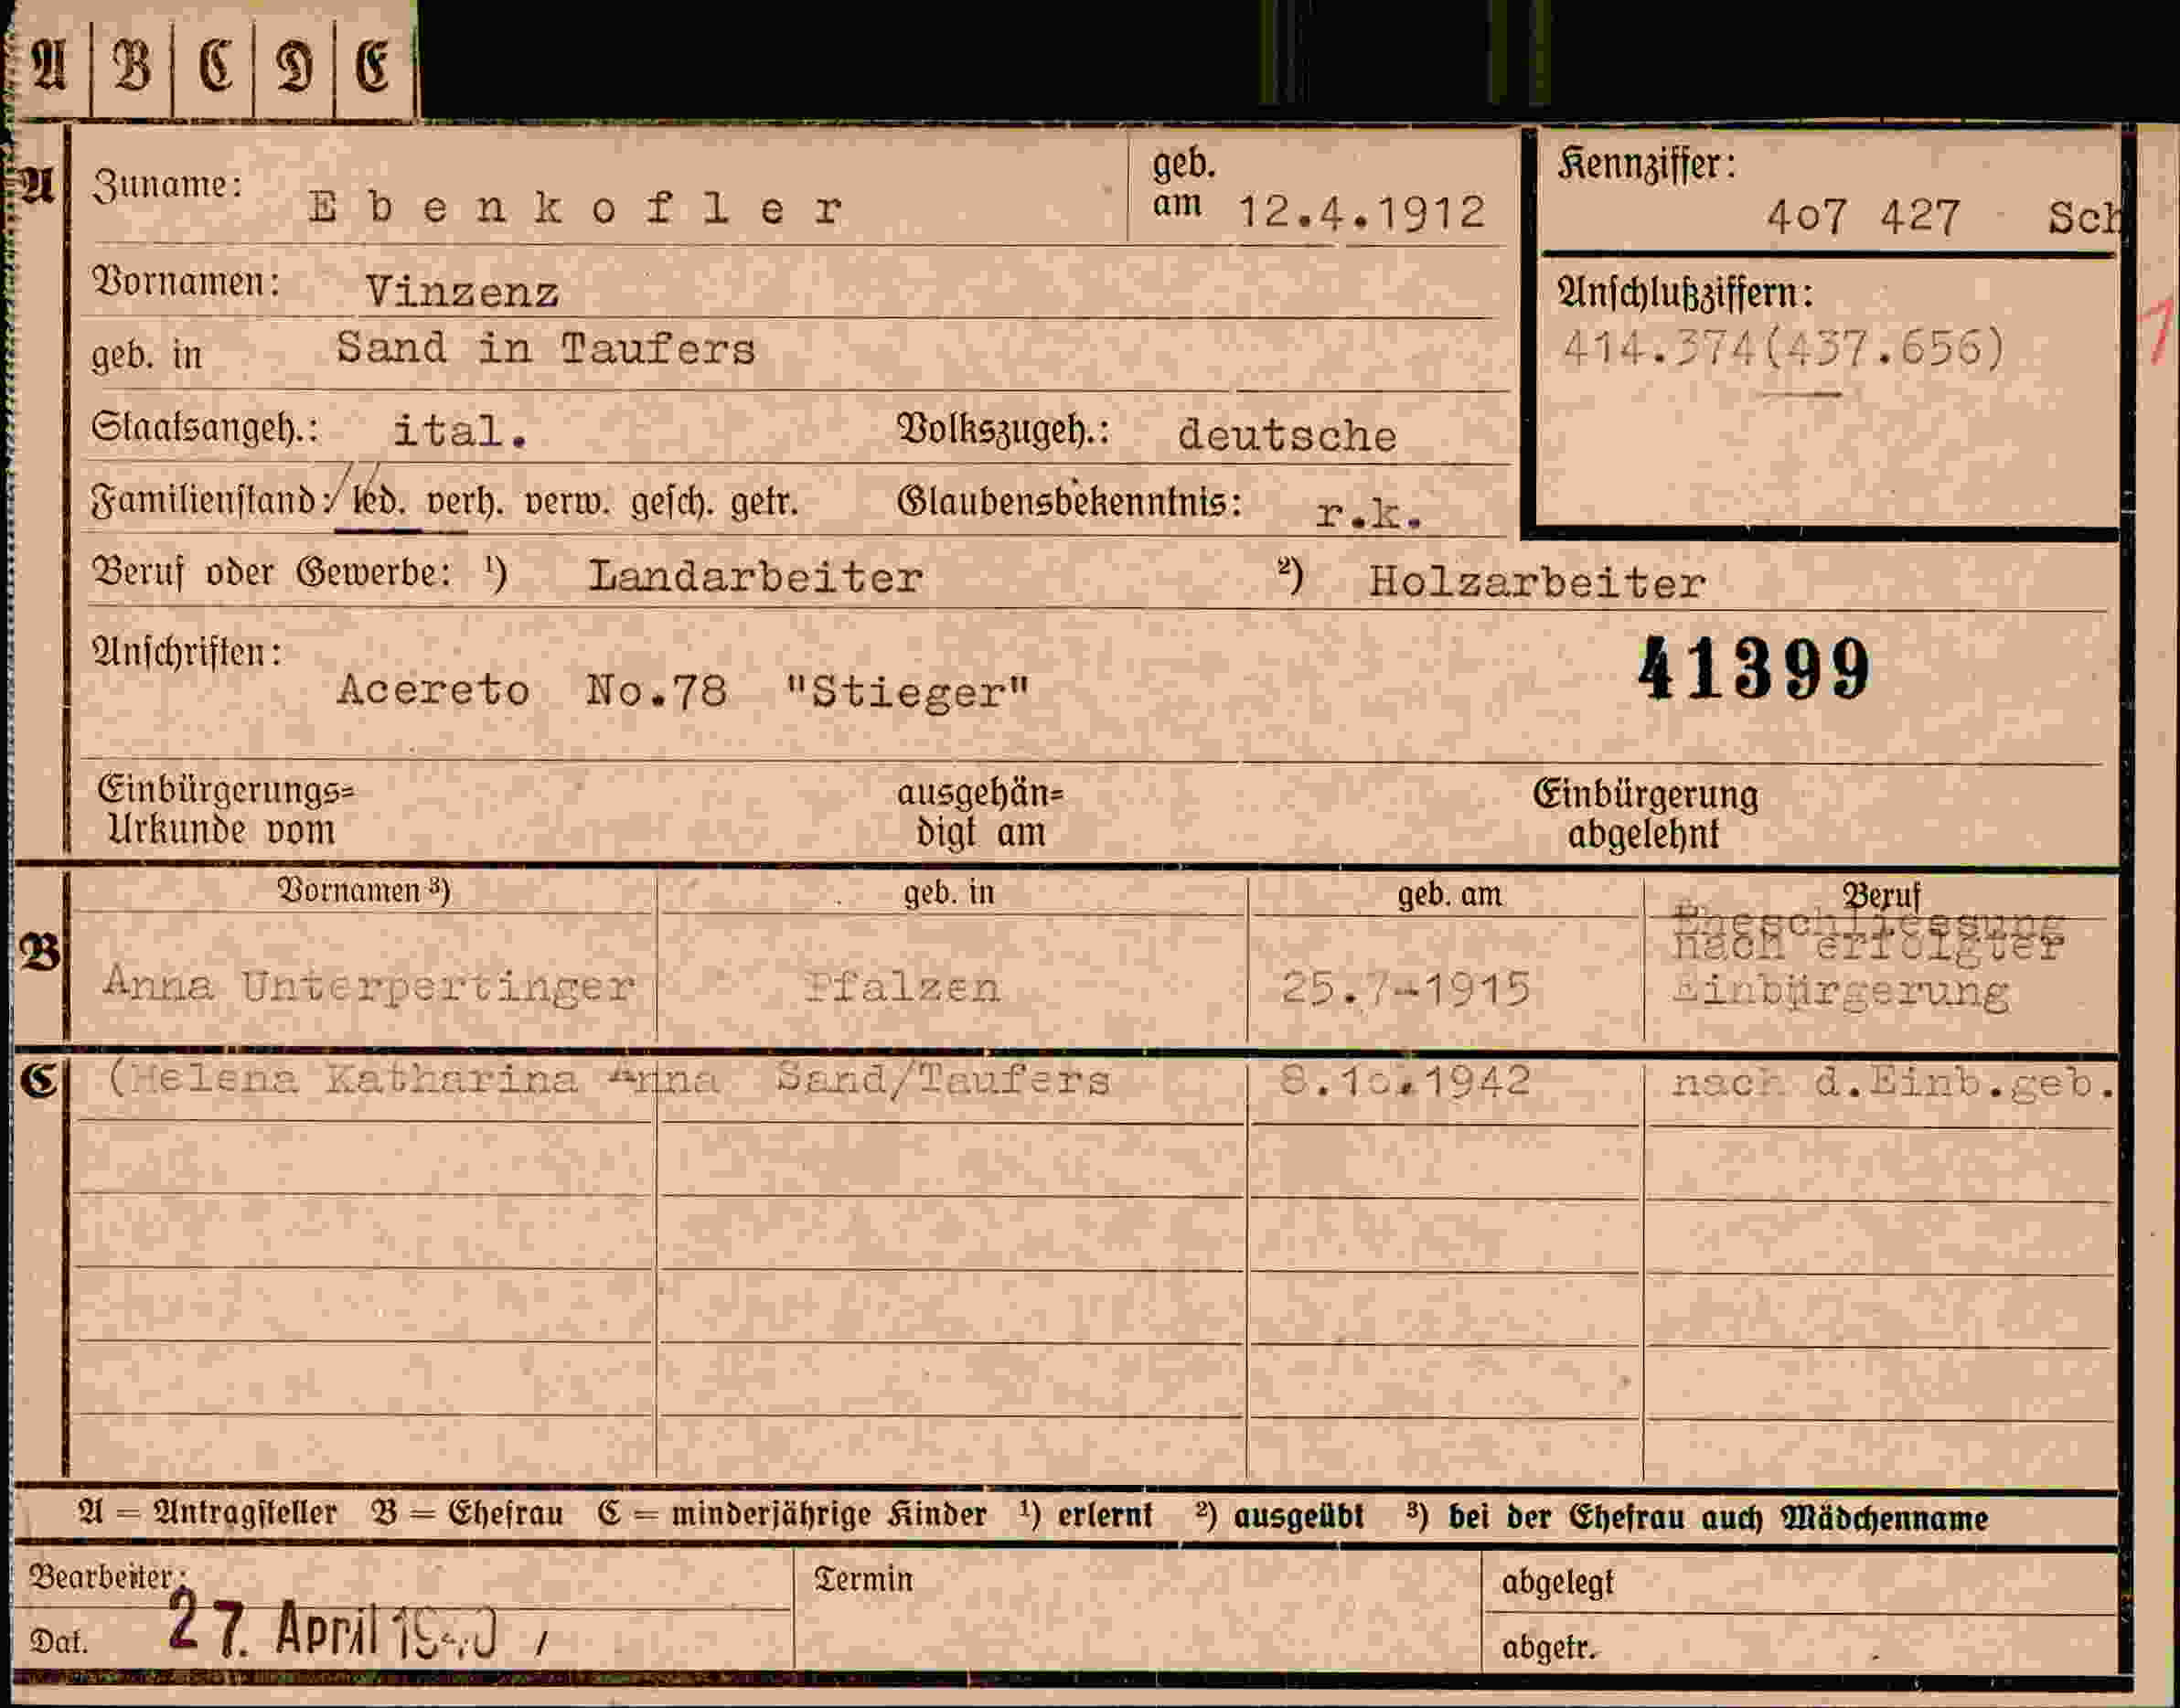 A | B | C | D | E
A Zuname: Ebenkofler geb. am 12.4.1912
Kennziffer:
4o7 427 Sch
Vornamen: Vinzenz
Anschlußziffern:
414.374(437.656)
1
geb. in Sand in Taufers
Staatsangeh.: ital. Volkszugeh.: deutsche
Familienstand: led. verh. verw. gesch. getr. Glaubensbekenntnis: r.k.
Beruf oder Gewerbe: ¹) Landarbeiter ²) Holzarbeiter
Anschriften:
Acereto No.78 "Stieger" 41399
Einbürgerungs= ausgehän= Einbürgerung
Urkunde vom digt am abgelehnt
Vornamen ³) geb. in geb. am Beruf
Eheschliessung
nach erfolgter
B Anna Unterpertinger Pfalzen 25.7-1915 Einbürgerung
C (Helena Katharina Anna Sand/Taufers 8.1o.1942 nach d.Einb.geb.
A = Antragsteller B = Ehefrau C = minderjährige Kinder ¹) erlernt ²) ausgeübt ³) bei der Ehefrau auch Mädchenname
Bearbeiter: Termin abgelegt
Dat. 27. April 1940 abgetr.